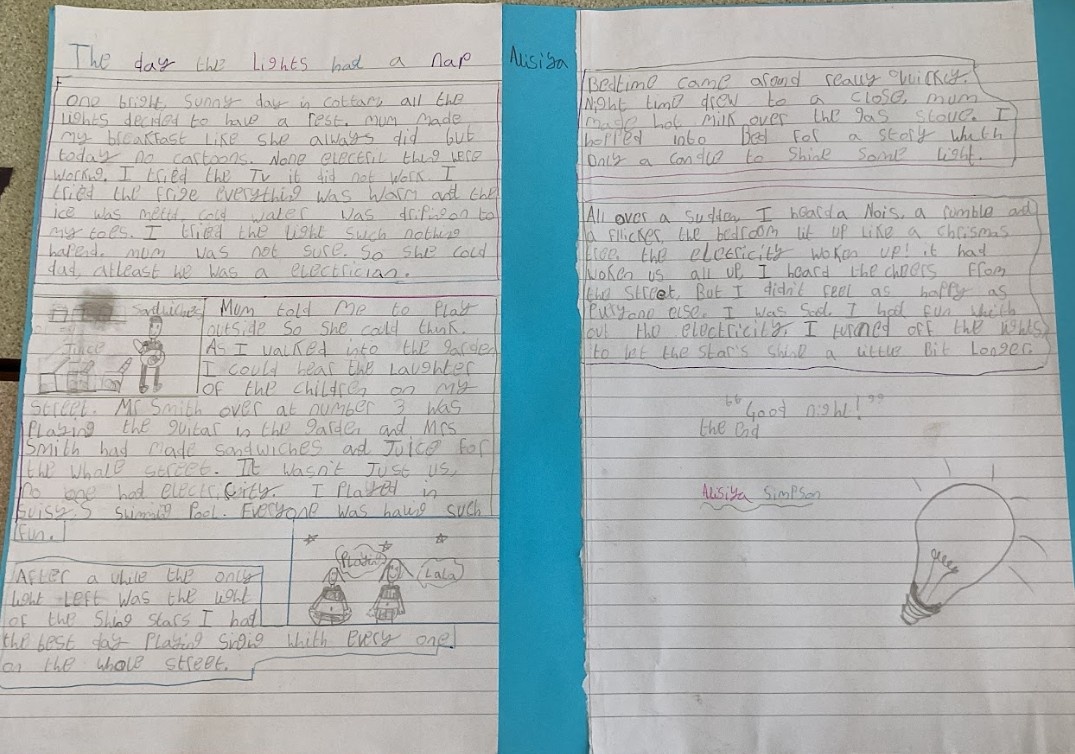 The day the Lights had a nap
Alisiya
One bright, sunny day in cottam, all the
lights decided to have a rest. mum made
my breakfast like she always did but
today no cartoons. None electril thing were
working. I tried the Tv it did not work I
tried the frige everything was warm and the
ice was meltd, cold water was driping on to
my toes. I tried the light such nothing
hapend. mum was not sure. So she cold
dad, atleast he was a electrician.
Sandwiches
Juice
Mum told me to Play
outside So she could think.
As I walked into the garden
I could hear the Laughter
of the children on my
street. Mr Smith over at number 3 was
Playing the guitar in the garden and Mrs
Smith had made sandwiches and Juice for
the whale street. It wasn't Just us,
no one had electricity. I Played in
swimming Pool. Everyone was haveing such
fun.
Playing
LaLa
After a while the only
light Left was the light
of the Shing stars I had
the best day Playing singing whith every one
on the whole street.
Bedtime came around really quickly.
Night time drew to a close, mum
made hot milk over the gas stove. I
hopped into bed for a story whith
only a candle to shine some light.
All over a sudden I heard a Nois, a rumble and
a flicker, the bedroom lit up like a chrismas
tree. the elecricity woken up! it had
woken us all up, I heard the cheers from
the street, But I didn't feel as happy as
everyone else. I was Sad. I had fun which
out the electricity. I turned off the lights
to let the Star's shine a little bit Longer.
"Good night!"
the end
Alisiya Simpson